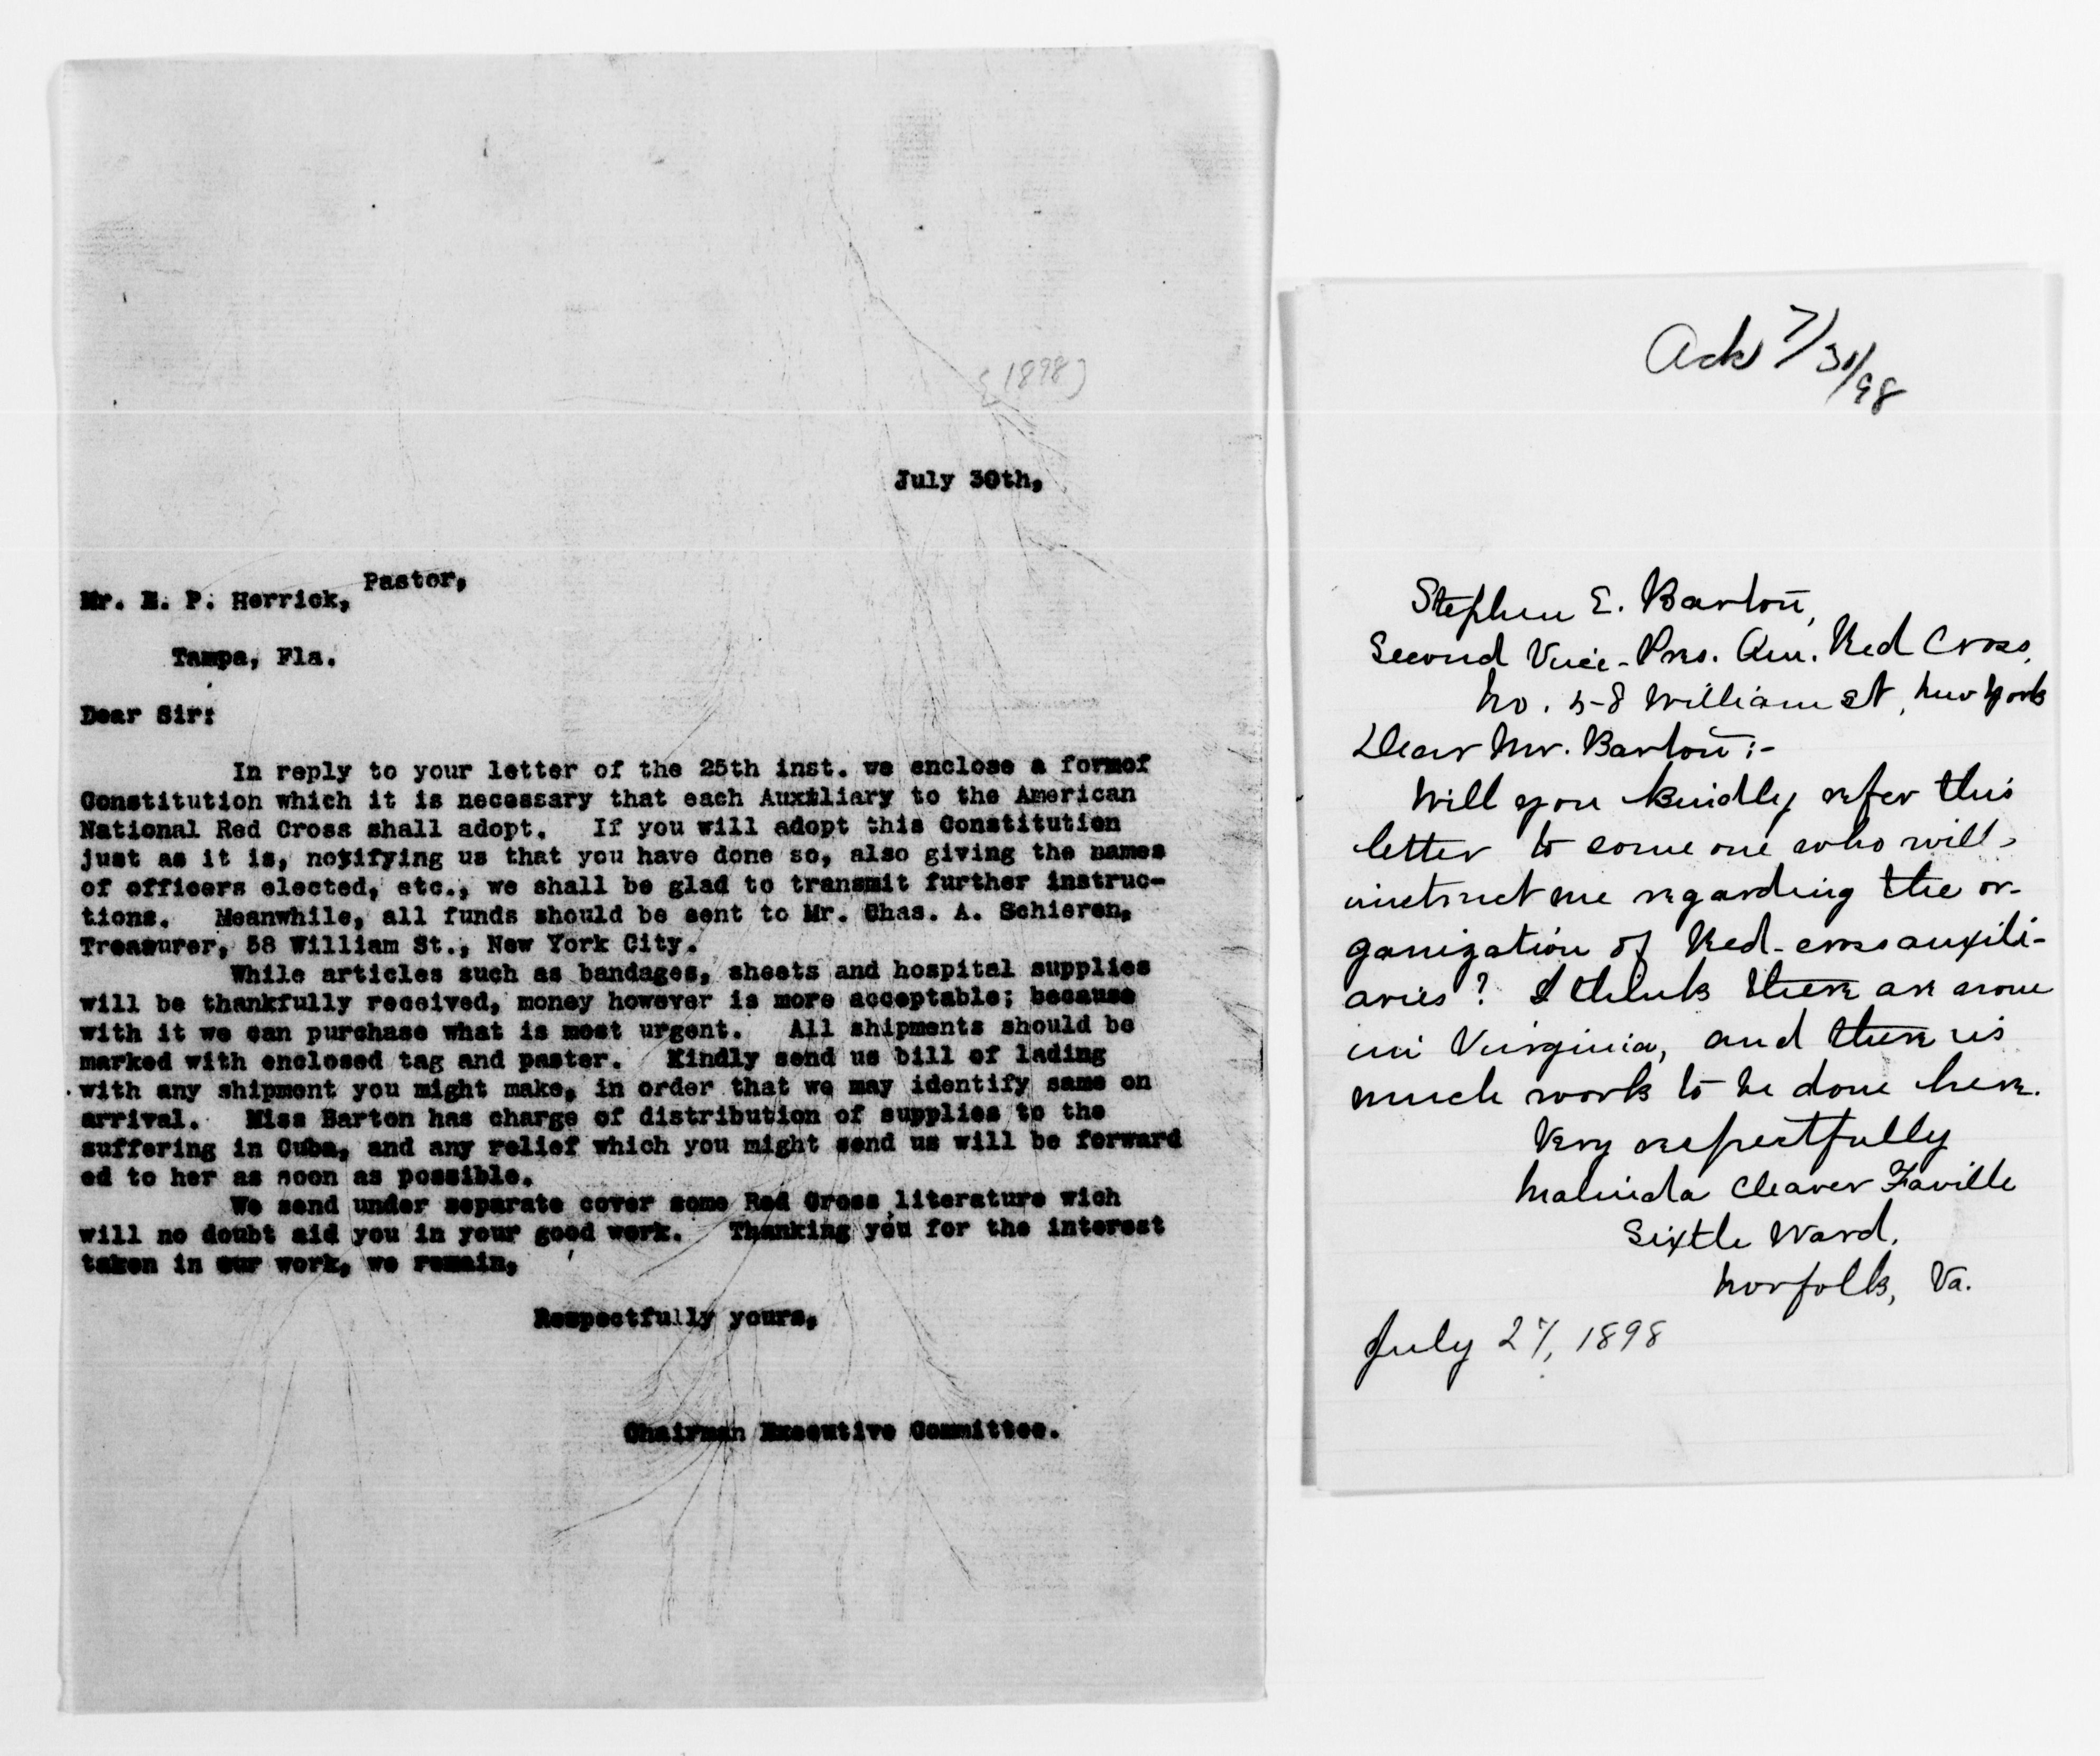 (1898)
July 30th,
Pastor,
Mr. E. P. Herrick,
Tampa, Fla.
Dear Sir:
In reply to your letter of the 25th inst. we enclose a formof
Constitution which it is necessary that each Auxiliary to the American
National Red Cross shall adopt. If you will adopt this Constitution
just as it is, notifying us that you have done so, also giving the names
of officers elected, etc., we shall be glad to transmit further instruc-
tions. Meanwhile, all funds should be sent to Mr. Chas. A. Schieren,
Treasurer, 58 William St., New York City.
While articles such as bandages, sheets and hospital supplies
will be thankfully received, money however is more acceptable; because
with it we can purchase what is most urgent. All shipments should be
marked with enclosed tag and paster. Kindly send us bill of lading
with any shipment you might make, in order that we may identify same on
arrival. Miss Barton has charge of distribution of supplies to the
suffering in Cuba, and any relief which you might send us will be forward
ed to her as soon as possible.
We send under separate cover some Red Cross literature wich
will no doubt aid you in your good work. Thanking you for the interest
taken in our work, we remain,
Respectfully yours,
Chairman Executive Committee.
Ack 7/30/98
Stephen E. Barton,
Second Vice-Pres. Am. Red Cross,
No. 58 William St, New York
Dear Mr. Barton:-
Will you kindly refer this
letter to some one who will
instruct me regarding the or-
ganization of Red-cross auxili-
aries? I think there are none
in Virginia, and there is
much work to be done here.
Very respectfully
Malinda Cleaver Faville
Sixth Ward,
Norfolk, Va.
July 27, 1898